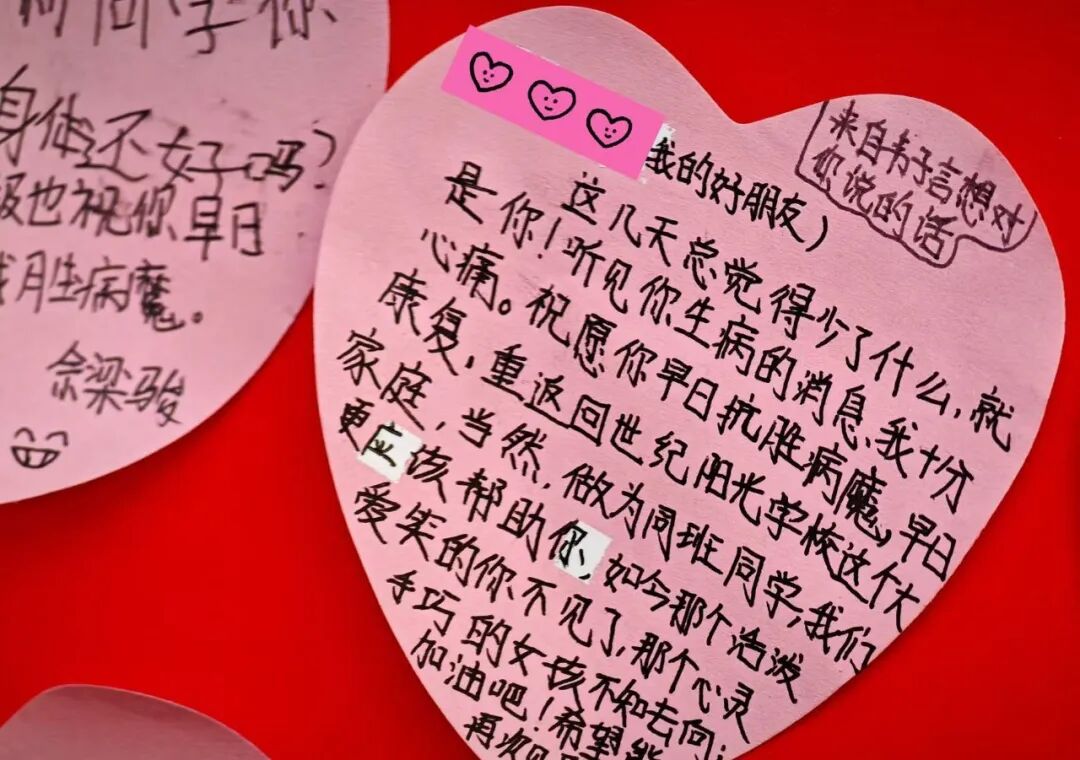 同学你
身体还好吗?
级也祝你早日
战胜病魔。
佘梁骏
来自韦子言想对
你说的话
我的好朋友)
这几天总觉得少了什么,就
是你!听见你生病的消息,我十分
心痛。祝愿你早日抗胜病魔,早日
康复,重返回世纪阳光学校这个大
家庭,当然,做为同班同学,我们
更应该帮助你,如今那个活泼
爱笑的你不见了,那个心灵
手巧的女孩不知去向;
加油吧!希望能
再次见